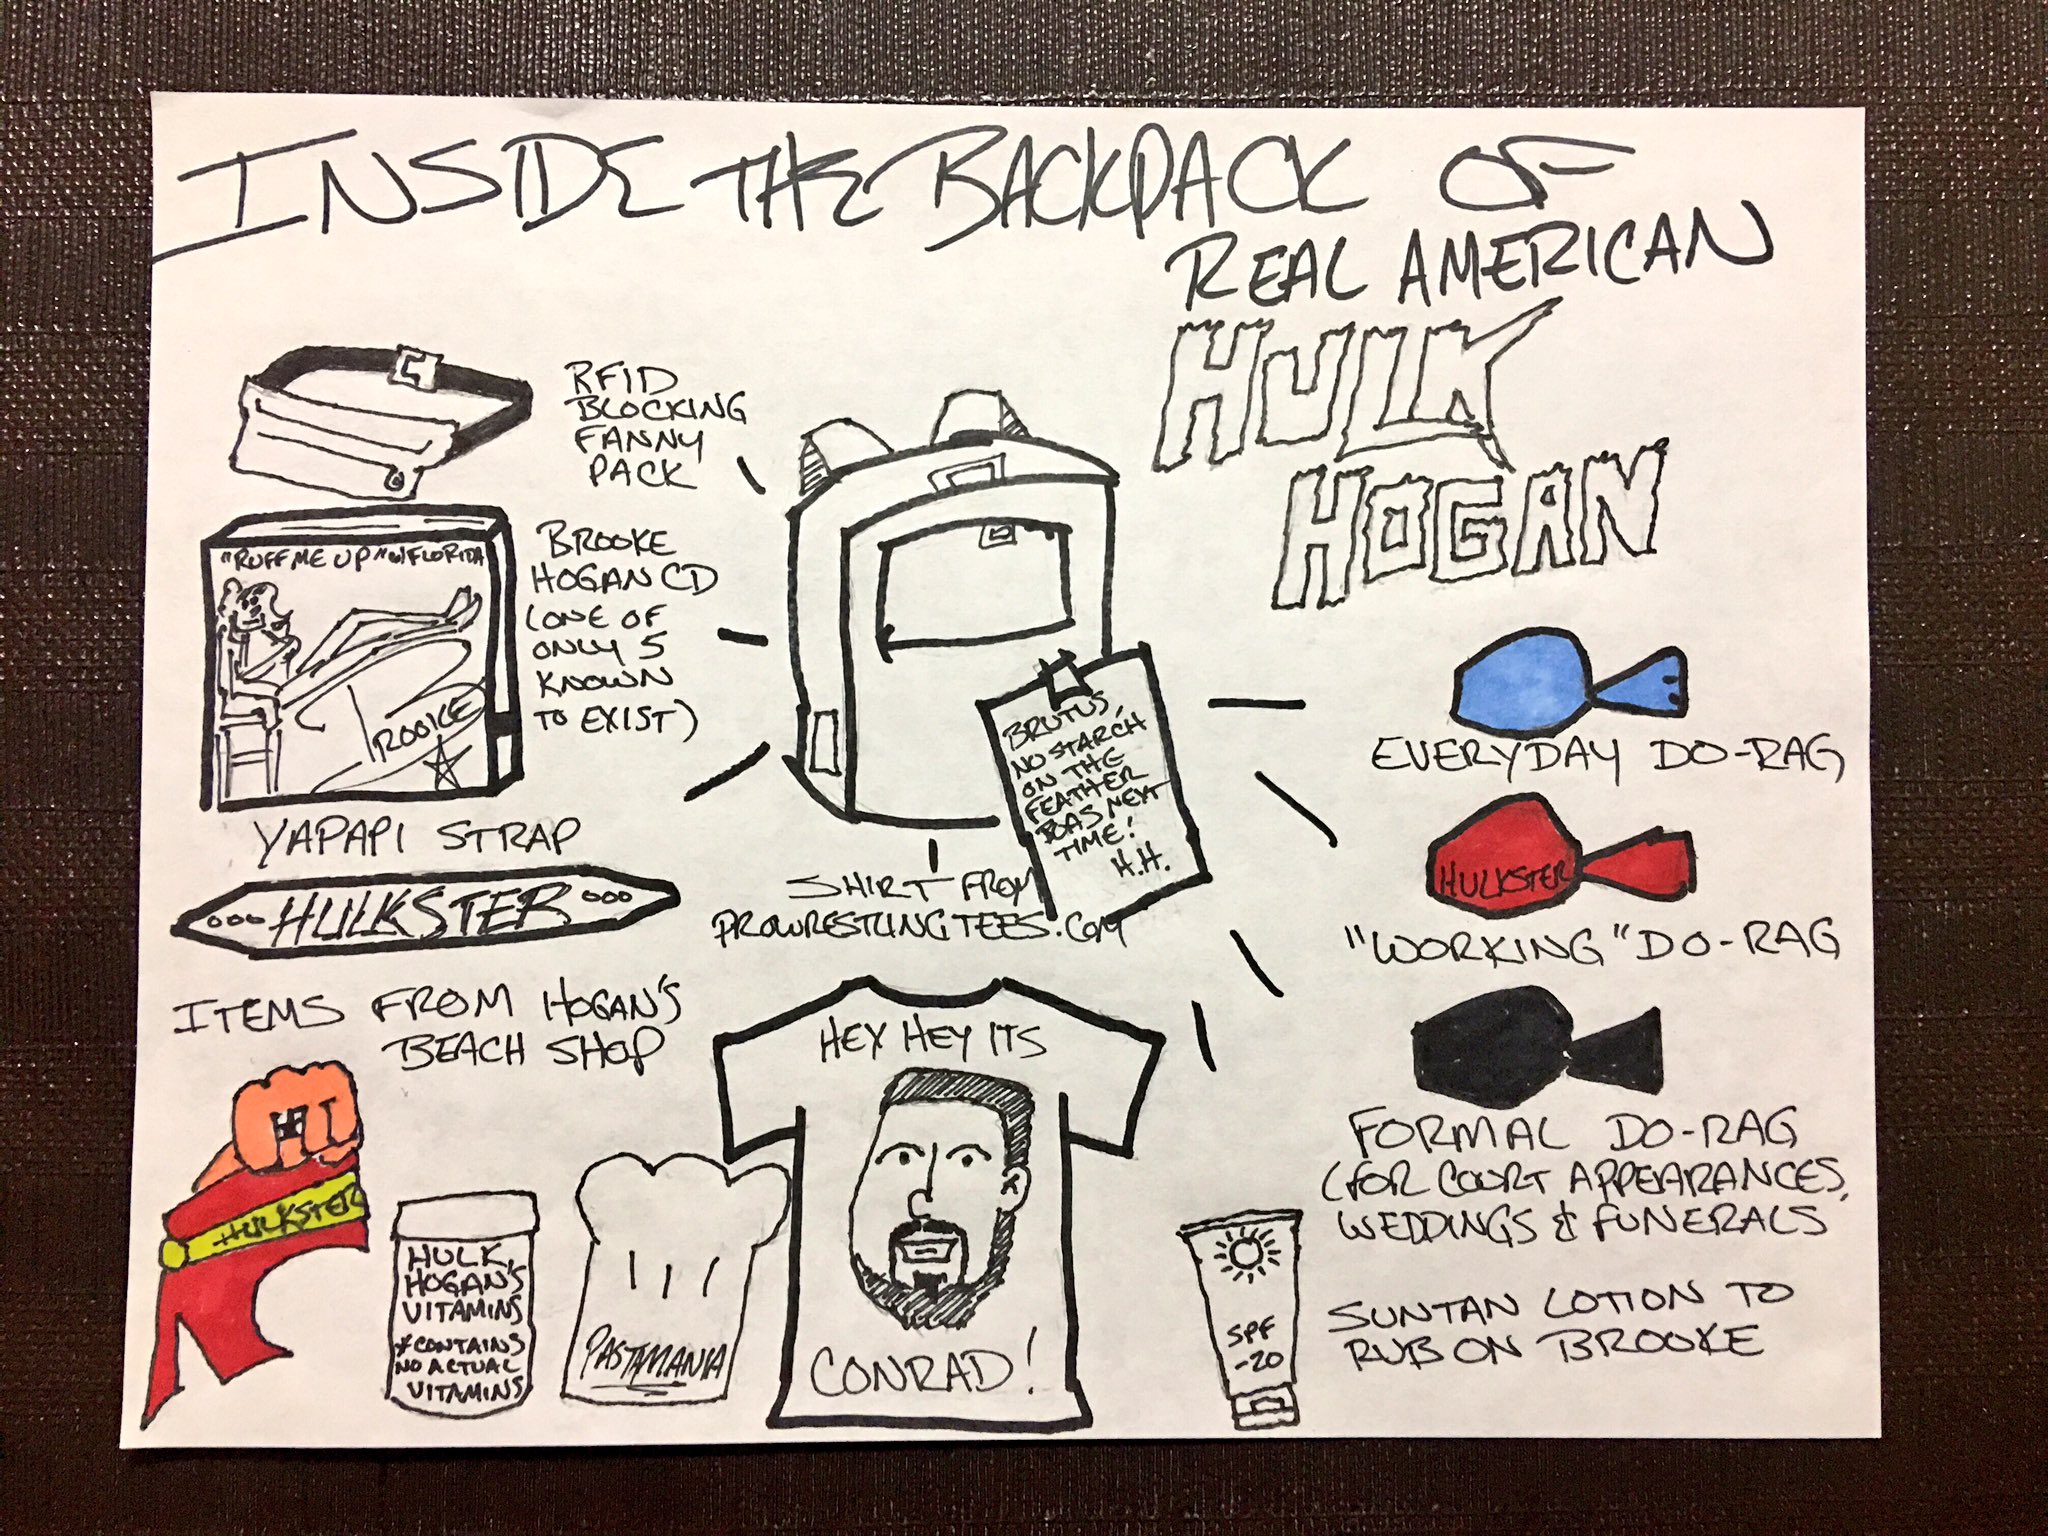 INSIDE THE BACKPACK OF
REAL AMERICAN
HULK
HOGAN
RFID
BLOCKING
FANNY
PACK
"RUFF ME UP" w/FLORIDA
BROOKE
BROOKE
HOGAN CD
(ONE OF
ONLY 5
KNOWN
TO EXIST)
YAPAPI STRAP
HULKSTER
ITEMS FROM HOGAN'S
BEACH SHOP
HULKSTER
HULK
HOGAN'S
VITAMINS
*CONTAINS
NO ACTUAL
VITAMINS
PASTAMANIA
BRUTUS,
NO STARCH
ON THE
FEATHER
BOAS NEXT
TIME!
H.H.
SHIRT FROM
PROWRESTLINGTEES.COM
HEY HEY ITS
CONRAD!
EVERYDAY DO-RAG
HULKSTER
"WORKING" DO-RAG
FORMAL DO-RAG
(FOR COURT APPEARANCES,
WEDDINGS & FUNERALS
SPF
-20
SUNTAN LOTION TO
RUB ON BROOKE